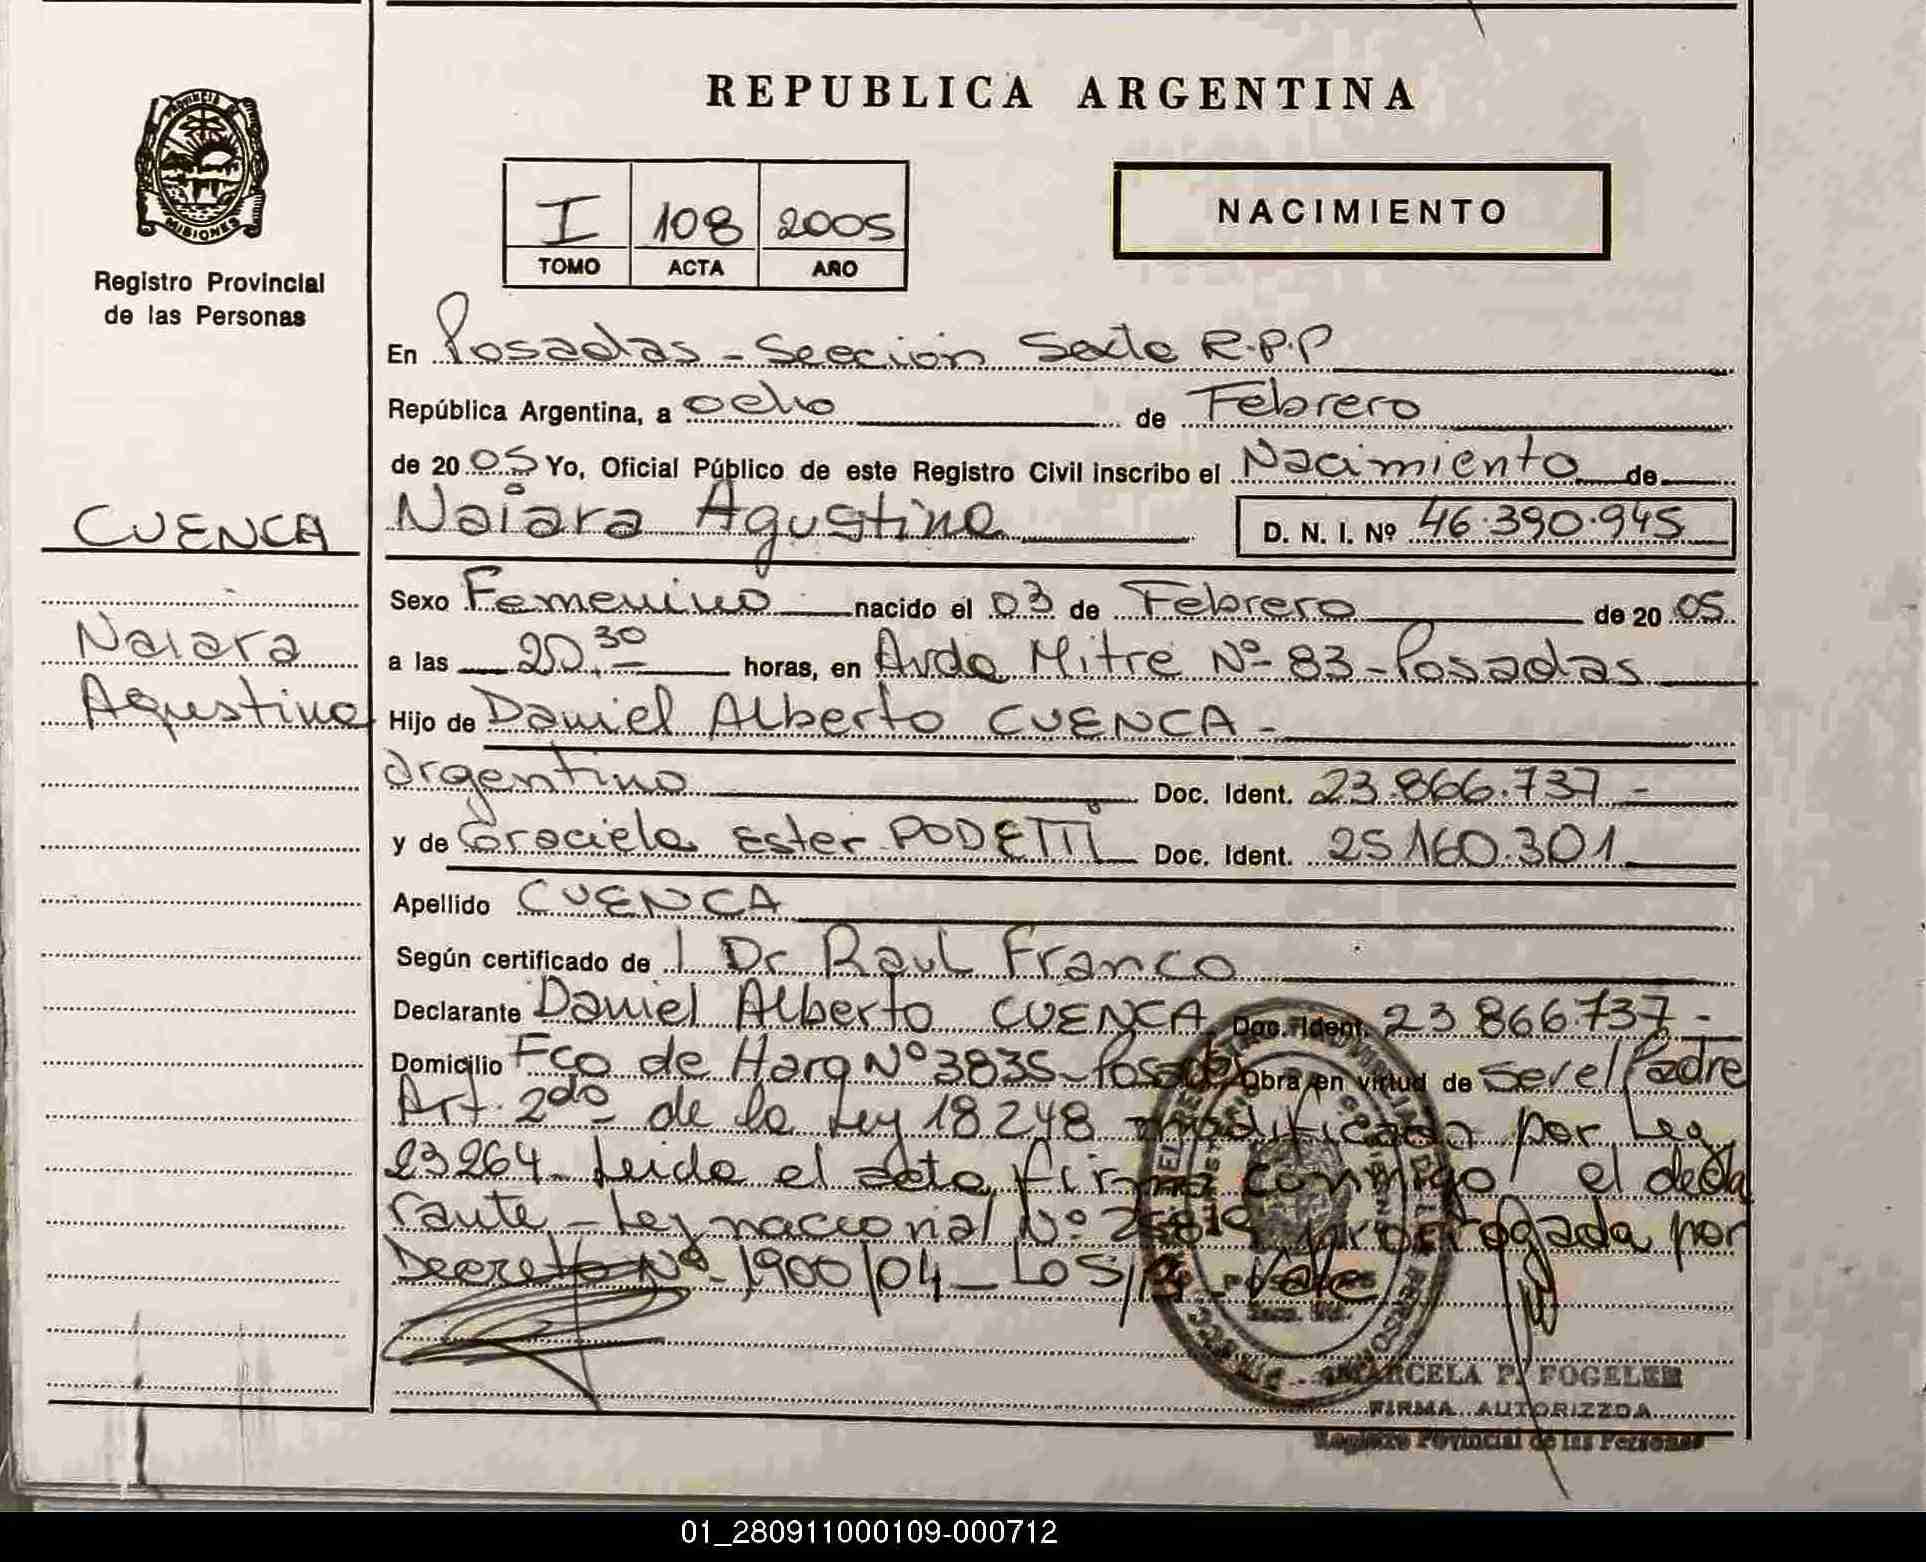 REPUBLICA ARGENTINA
PROVINCIA DE
MISIONES
Registro Provincial
de las Personas
I 108 2005
TOMO ACTA AÑO
NACIMIENTO
En Posadas - Sección Sexta R.P.P
República Argentina, a ocho de Febrero
de 2005 Yo, Oficial Público de este Registro Civil inscribo el Nacimiento de
CUENCA
Naiara Agustina
D. N. I. Nº 46.390.945
Sexo Femenino nacido el 03 de Febrero de 2005
Naiara
a las 20,30 horas, en Avda Mitre Nº 83 - Posadas
Agustina
Hijo de Daniel Alberto CUENCA -
argentino Doc. Ident. 23.866.737 -
y de Graciela Ester PODETTI Doc. Ident. 25.160.301
Apellido CUENCA
Según certificado de l Dr Raul Franco
Declarante Daniel Alberto CUENCA Doc. Ident. 23 866.737 -
Domicilio Fco de Haro Nº 3835 - Posadas Obra en virtud de ser el Padre
Art. 2do de la Ley 18248 modificada por Ley
23264 - Leida el acta, firma conmigo el decla
rante - Ley nacional Nº 25819 prorrogada por
Decreto Nº 1900/04 - Lo S/R - Vale
POSADAS
MARCELA P. FOGELER
FIRMA AUTORIZZDA
Registro Povincial de las Personas
01_280911000109-000712